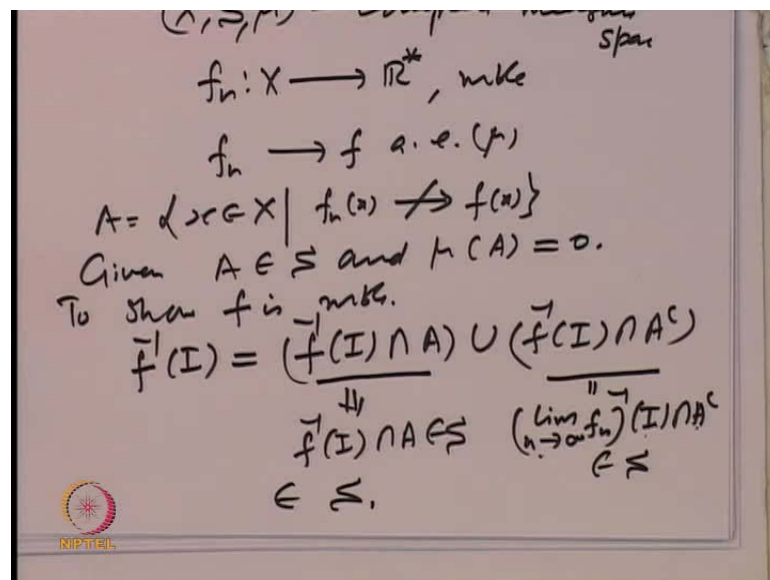 (X, S, μ) complete measure
space
fₙ : X ⟶ ℝ*, mble
fₙ ⟶ f a.e.(μ)
A = {x ∈ X | fₙ(x) ↛ f(x)}
Given A ∈ S and μ(A) = 0.
To show f is mble.
f⁻¹(I) = (f⁻¹(I) ∩ A) ∪ (f⁻¹(I) ∩ Aᶜ)
f⁻¹(I) ∩ A ∈ S (lim n→∞ fₙ)⁻¹(I) ∩ Aᶜ
∈ S
∈ S.
NPTEL